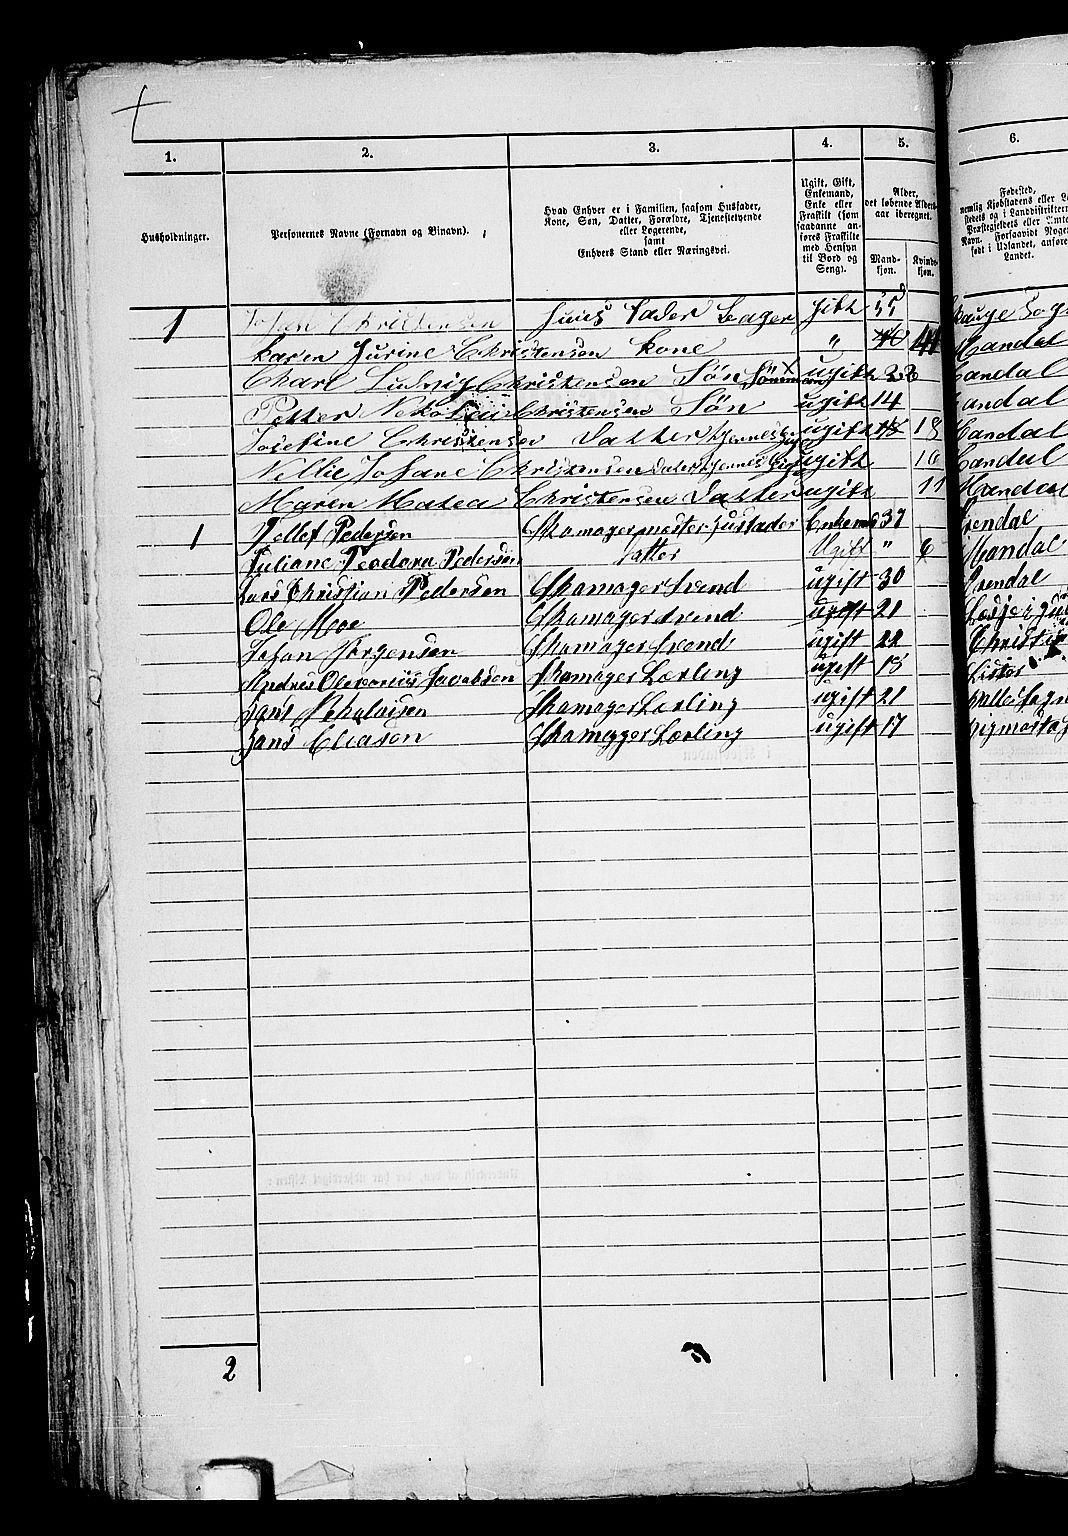 1. 2. 3. 4. 5. 6.
Husholdninger.
Personernes Navne (Fornavn og Binavn).
Hvad Enhver er i Familien, saasom Husfader,
Kone, Søn, Datter, Forældre, Tjenestetyende
eller Logerende,
samt
Enhvers Stand eller Næringsvei.
Ugift, Gift,
Enkemand,
Enke eller
Fraskilt (som
saadanne an-
føres Fraskilte
med Hensyn
til Bord og
Seng).
Alder,
det løbende Alders-
aar iberegnet.
Mand-
kjøn.
Kvinde-
kjøn.
Fødested,
nemlig Kjøbstadens eller
stedets og i Landdistrikter
Præstegjeldets eller
Navn. Forsaavidt Nogen
født i Udlandet, anføre
Landet.
1 Johan Christensen Huus Fader Bager gift 55
Karen Jurine Christensen Kone " 40 41 Mandal
Charl Ludvig Christensen Søn Sømman ugift 22 Mandal
Petter Nekolai Christensen Søn ugift 14 Mandal
Josefine Christensen Datter ugift 18 18 Mandal
Nellie Johane Christensen Dater ugift 16 Mandal
Maren Matea Christensen Datter ugift 11 Mandal
1 Tellef Pedersen Skomagermester Husfader Enkemd 37 Arendal
Juliane Teodora Pedersen Datter Ugift " 6 Mandal
Lars Christian Pedersen Skomager Svend ugift 30 Arendal
Ole Moe Skomager Svend ugift 21
Johan Jørgensen Skomager Svend ugift 22
Andreas Olevarius Jacobsen Skomager Lærling ugift 15 Lister
Jans Nekolaisen Skomager Lærling ugift 21 Halle Sogn
Jans Eliason Skomager Lærling ugift 17
2